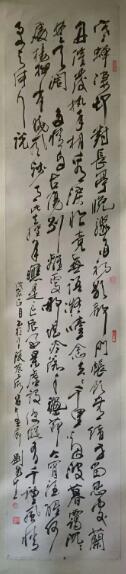 寒蟬淒切對長亭晚驟雨初歇都門帳飲無緒留戀處蘭
舟催發執手相看淚眼竟無語凝噎念去去千里煙波暮靄沉沉
楚天闊多情自古傷離別更那堪冷落清秋節今宵酒醒何
處楊柳岸曉風殘月此去經年應是良辰好景虛設便縱有千種風情
更與何人說